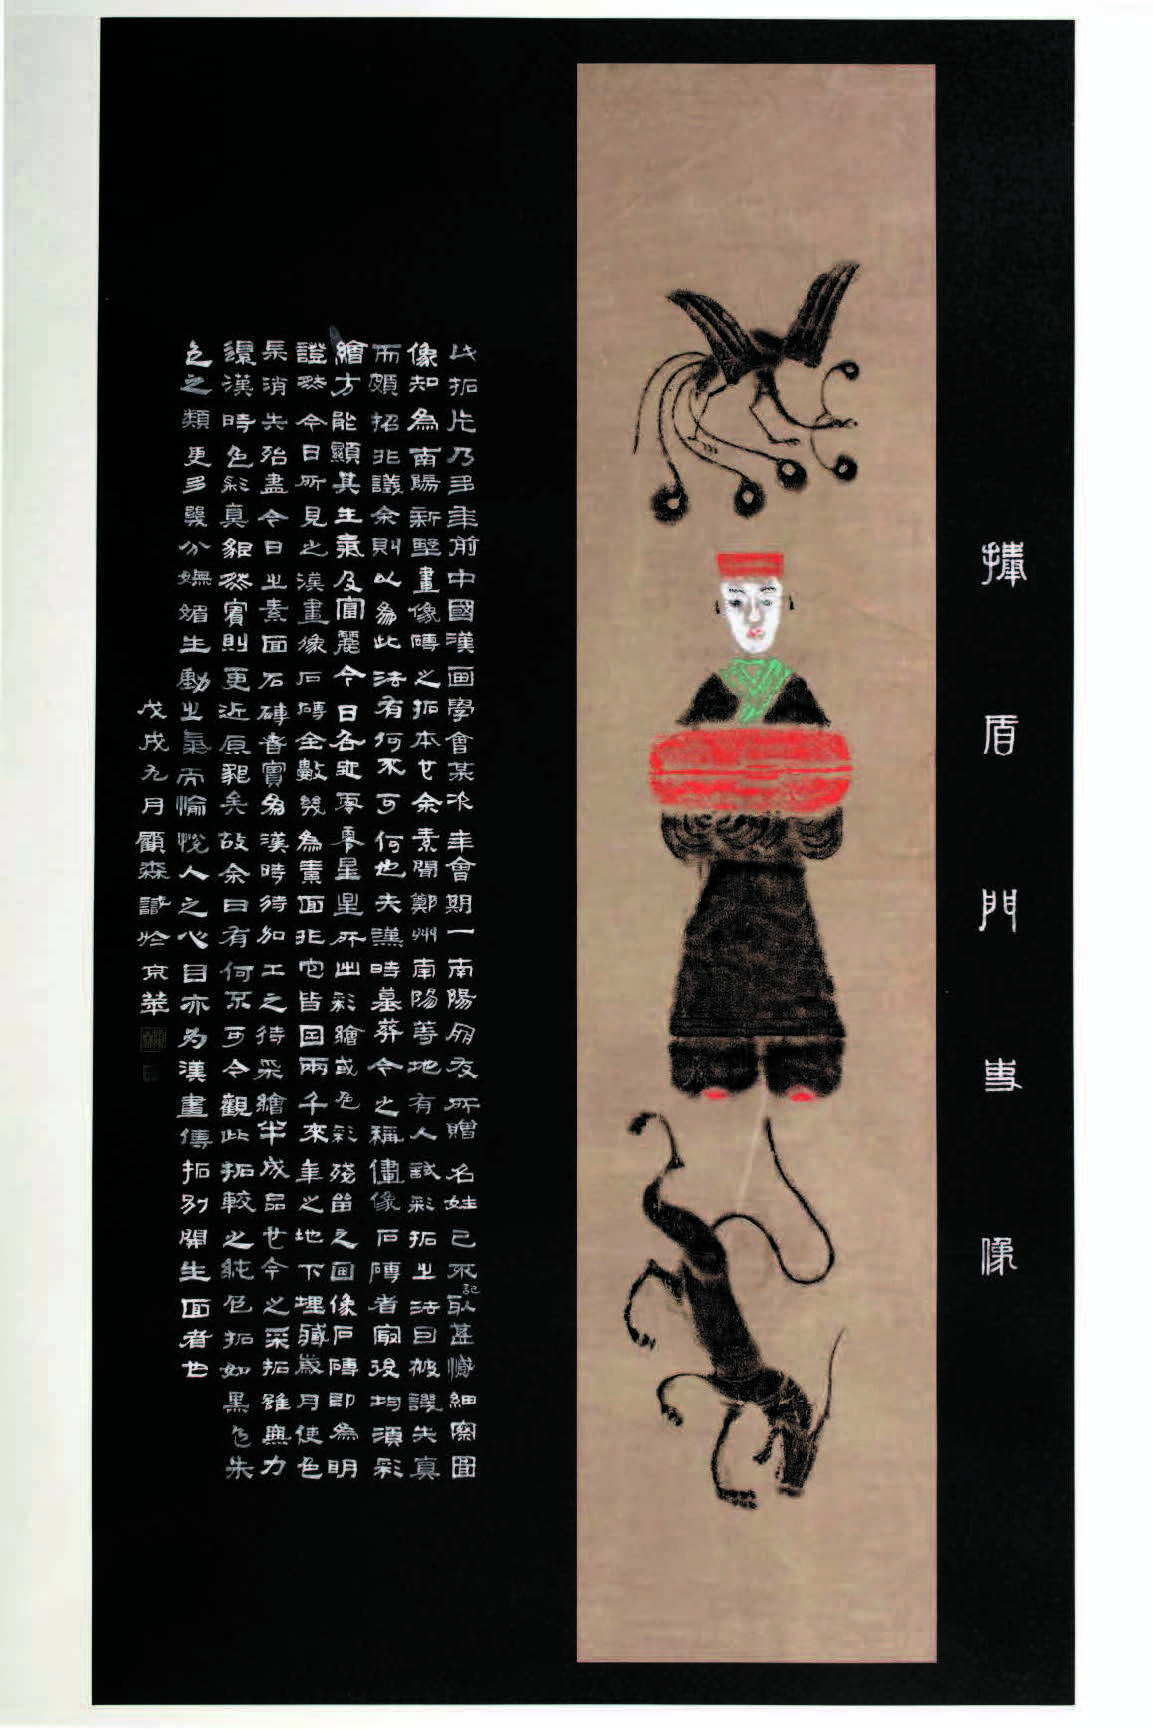 捧盾門吏像
此拓片乃多年前中國漢画學會某次年會期一南陽朋友所贈名姓已不記取甚憾細察圖
像知為南陽新野畫像磚之拓本也余素聞鄭州南陽等地有人試彩拓之法曰被譏失真
而頗招非議余則以為此法有何不可何也夫漢時墓葬今之稱畫像石磚者最後均須彩
繪方能顯其生氣及富麗今日各處零零星星所出彩繪或色彩殘留之画像石磚即為明
證然今日所見之漢畫像石磚全數幾為素面非它皆因兩千來年之地下埋藏歲月使色
采消失殆盡今日之素面石磚者實為漢時待加工之待采繪半成品也今之采拓雖無力
還漢時色彩真貌然實則更近原貌矣故余曰有何不可今觀此拓較之純色拓如黑色朱
色之類更多幾分嫵媚生動之氣而愉悅人之心目亦為漢畫傳拓別開生面者也
戊戌九月顧森識於京華